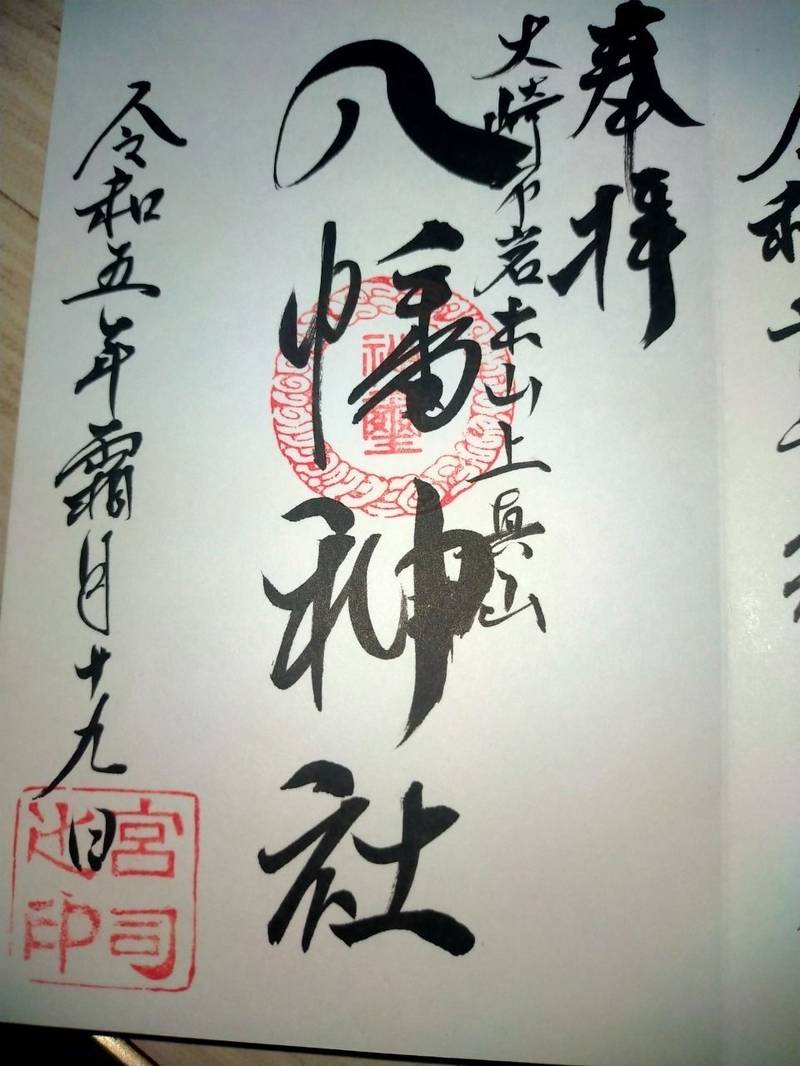 奉拝
大崎市岩出山上真山
八幡神社
令和五年霜月十九日
宮司之印